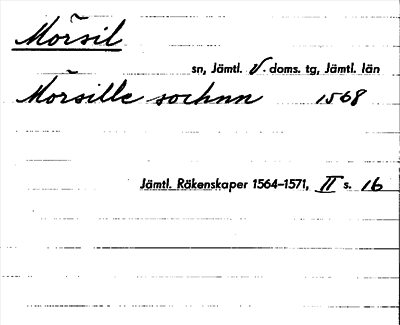 Mörsil
sn, Jämtl. v. doms. tg, Jämtl. län
Mörsille sochnn 1568
Jämtl. Räkenskaper 1564–1571, II s. 16